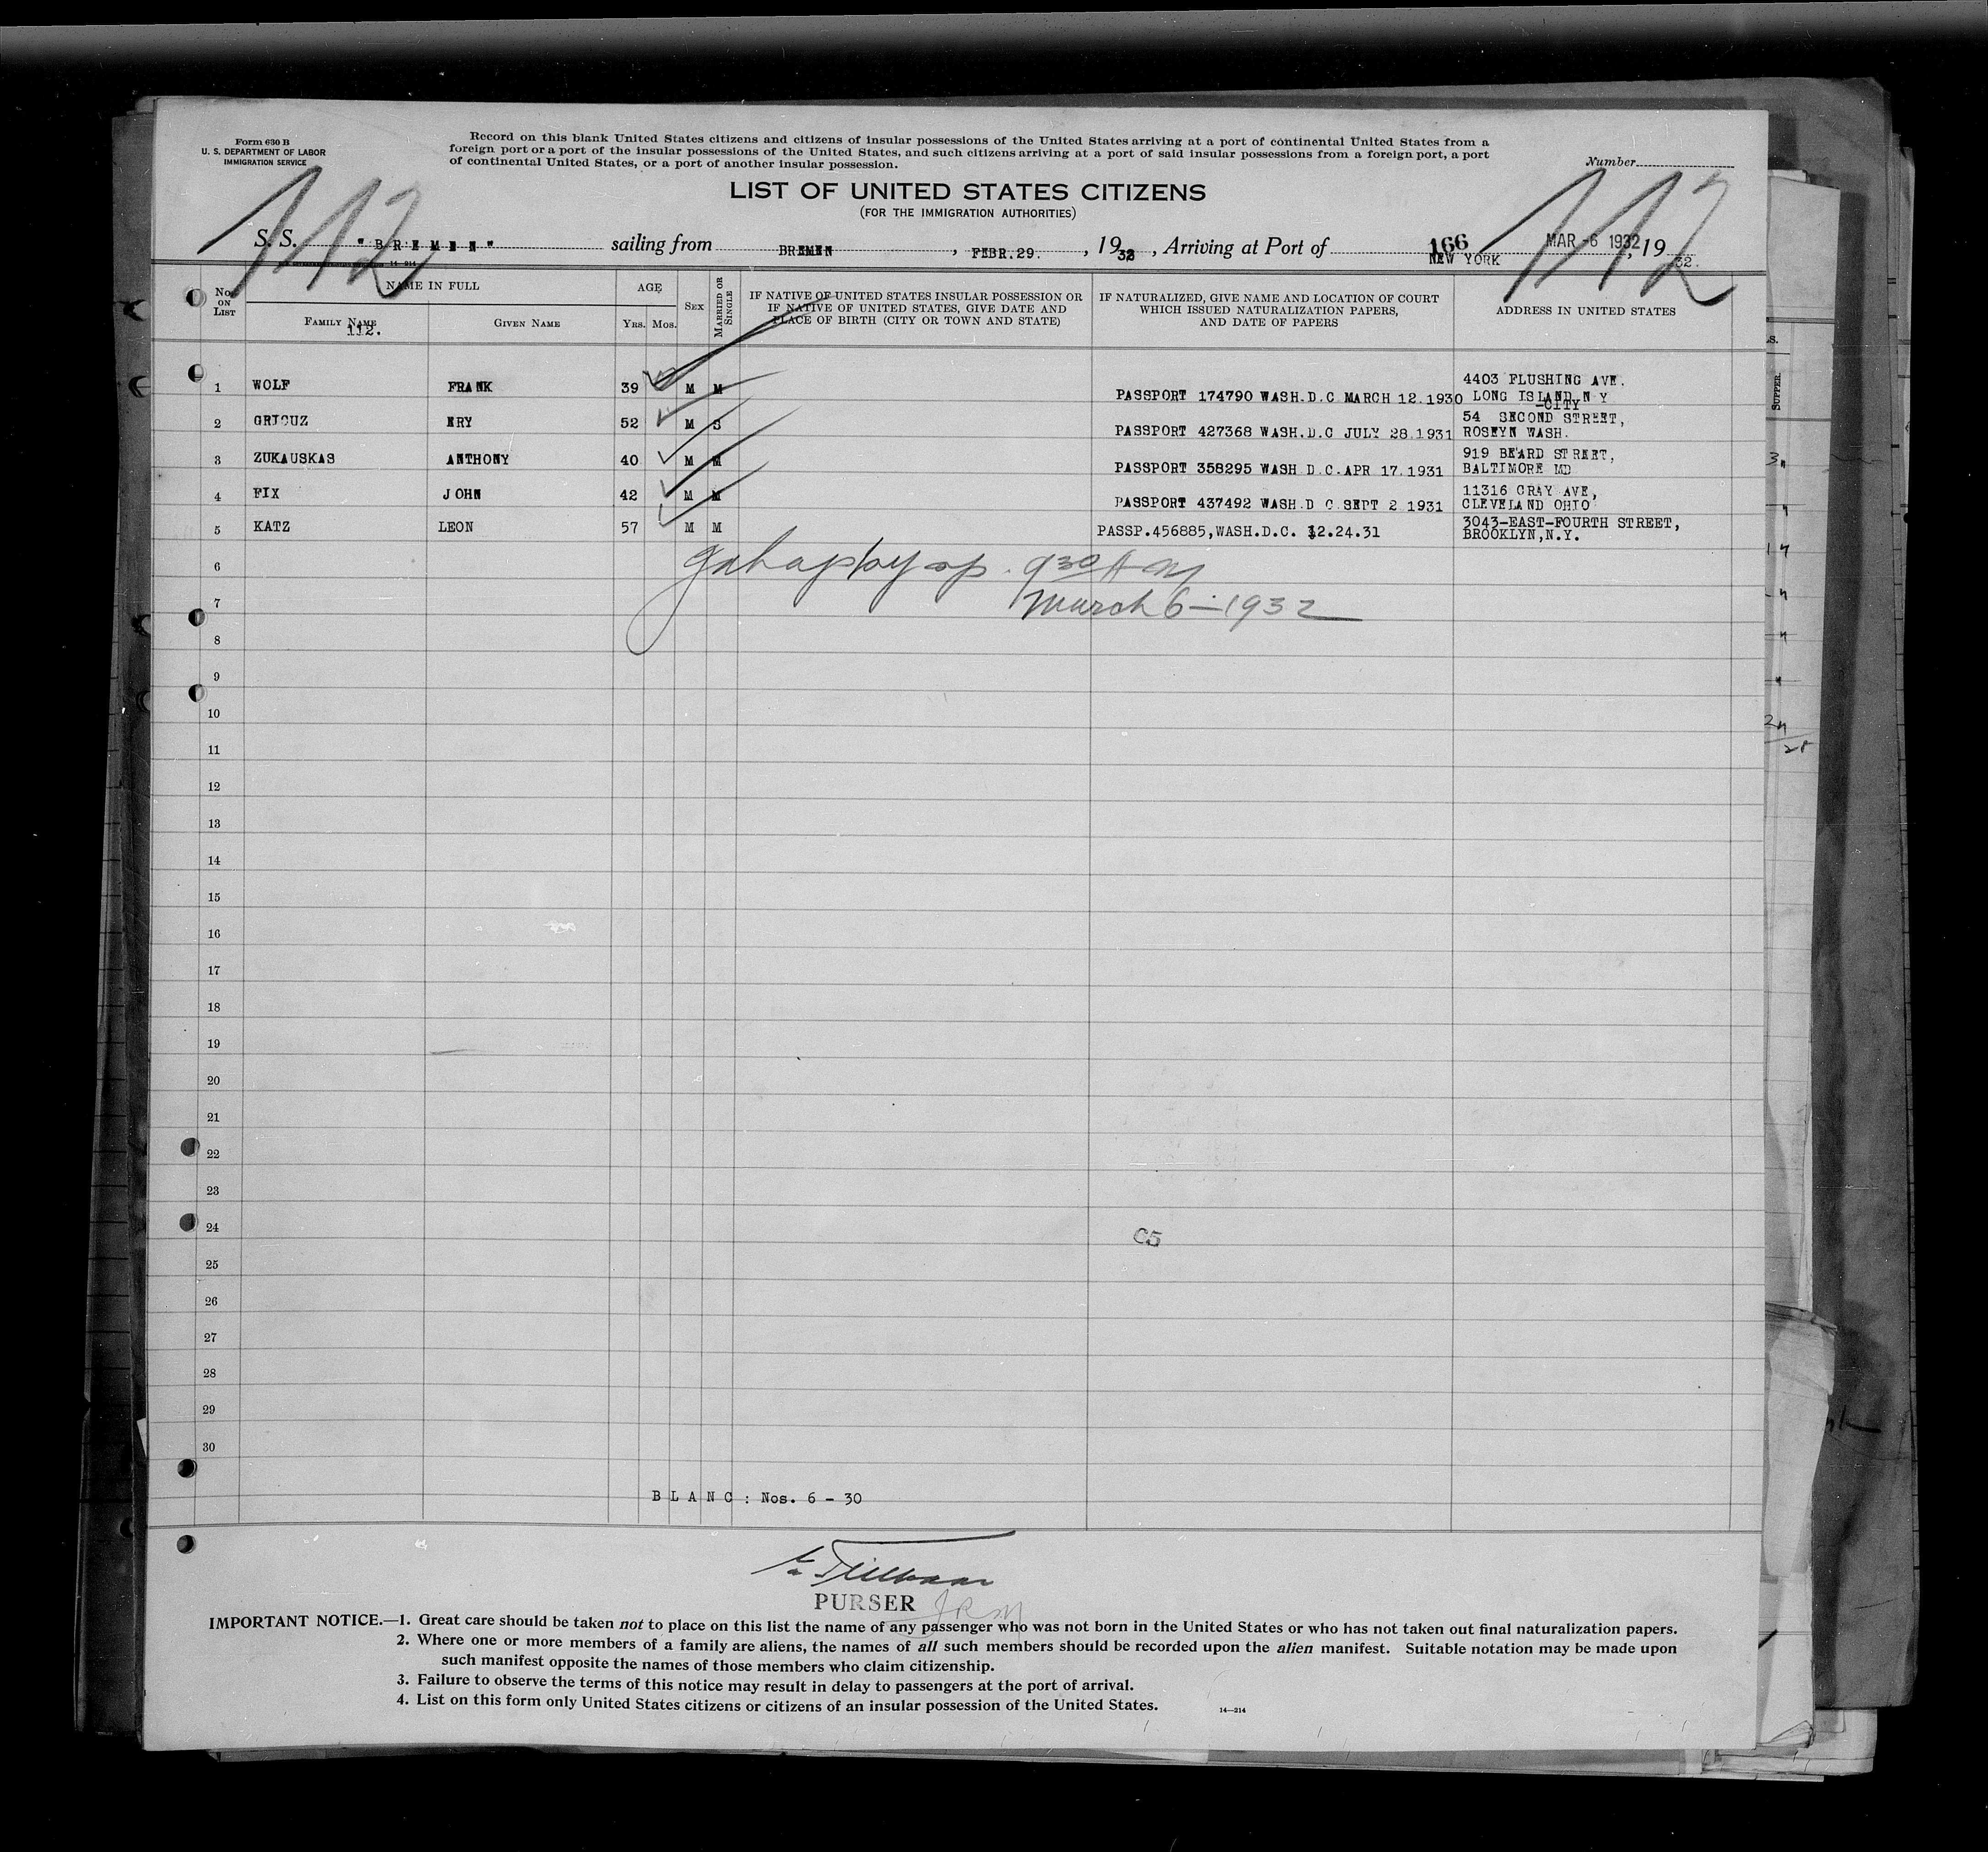 Form 630 B
U. S. DEPARTMENT OF LABOR
IMMIGRATION SERVICE
Record on this blank United States citizens and citizens of insular possessions of the United States arriving at a port of continental United States from a
foreign port or a port of the insular possessions of the United States, and such citizens arriving at a port of said insular possessions from a foreign port, a port
of continental United States, or a port of another insular possession.
Number
112 112
LIST OF UNITED STATES CITIZENS
(FOR THE IMMIGRATION AUTHORITIES)
S. S. "BREMEN" sailing from BREMEN, FEBR.29., 1932, Arriving at Port of 166 NEW YORK MAR -6 1932, 1932.
No. ON LIST
NAME IN FULL
FAMILY NAME
112.
GIVEN NAME
AGE
YRS. MOS.
SEX
MARRIED OR SINGLE
IF NATIVE OF UNITED STATES INSULAR POSSESSION OR
IF NATIVE OF UNITED STATES, GIVE DATE AND
PLACE OF BIRTH (CITY OR TOWN AND STATE)
IF NATURALIZED, GIVE NAME AND LOCATION OF COURT
WHICH ISSUED NATURALIZATION PAPERS,
AND DATE OF PAPERS
ADDRESS IN UNITED STATES
1 WOLF FRANK 39 M M PASSPORT 174790 WASH.D.C MARCH 12.1930 4403 FLUSHING AVE.
LONG ISLAND N Y
-CITY
2 GRICUZ ERY 52 M S PASSPORT 427368 WASH.D.C JULY 28.1931 54 SECOND STREET,
ROSEYN WASH.
3 ZUKAUSKAS ANTHONY 40 M M PASSPORT 358295 WASH D.C.APR 17.1931 919 BEARD STREET,
BALTIMORE MD
4 FIX JOHN 42 M M PASSPORT 437492 WASH.D C.SEPT 2 1931 11316 CRAY AVE,
CLEVELAND OHIO
5 KATZ LEON 57 M M PASSP.456885,WASH.D.C. 12.24.31 3043-EAST-FOURTH STREET,
BROOKLYN,N.Y.
6
930 AM
7
March 6-1932
8
9
10
11
12
13
14
15
16
17
18
19
20
21
22
23
24
C5
25
26
27
28
29
30
BLANC: Nos. 6 - 30
PURSER
IMPORTANT NOTICE.—1. Great care should be taken not to place on this list the name of any passenger who was not born in the United States or who has not taken out final naturalization papers.
2. Where one or more members of a family are aliens, the names of all such members should be recorded upon the alien manifest. Suitable notation may be made upon
such manifest opposite the names of those members who claim citizenship.
3. Failure to observe the terms of this notice may result in delay to passengers at the port of arrival.
4. List on this form only United States citizens or citizens of an insular possession of the United States.
14—214
SUPPER.